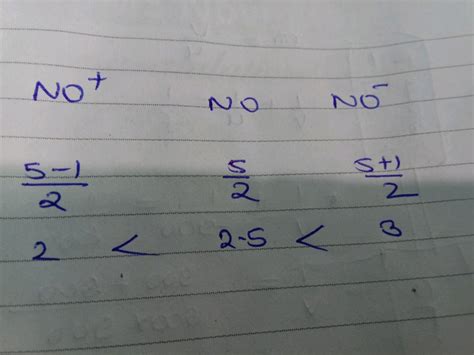 NO⁺ NO NO⁻
5-1/2 5/2 5+1/2
2 < 2.5 < 3